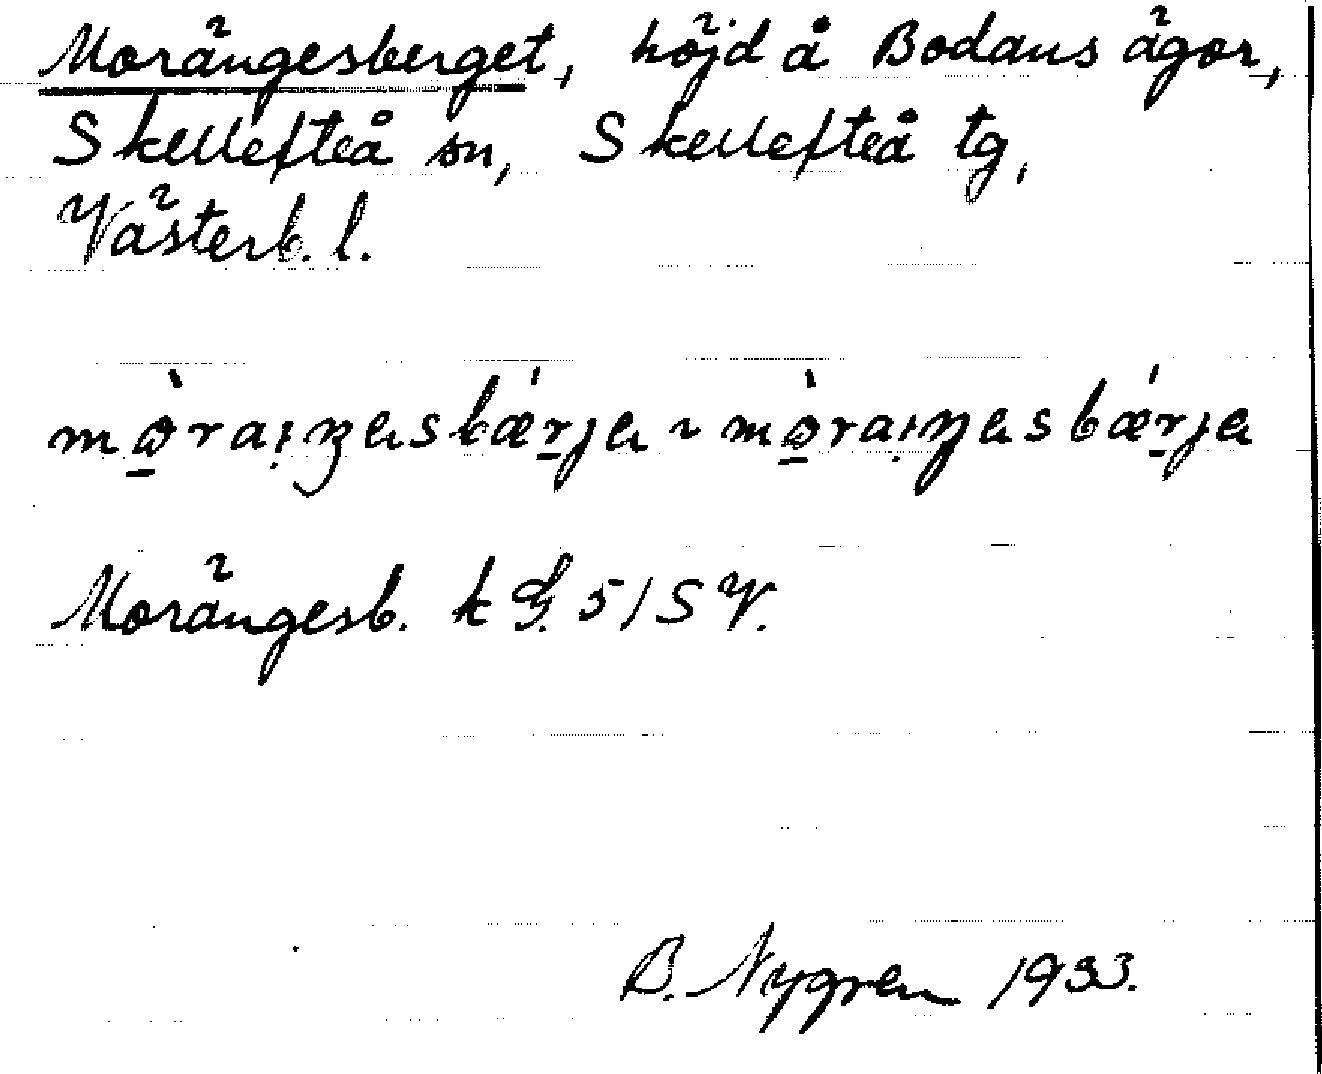 Morängesberget, höjd å Bodans ägor,
Skellefteå sn, Skellefteå tg,
Västerb. l.
Morängesb. k G. 5 / S V.
B. Nygren 1933.